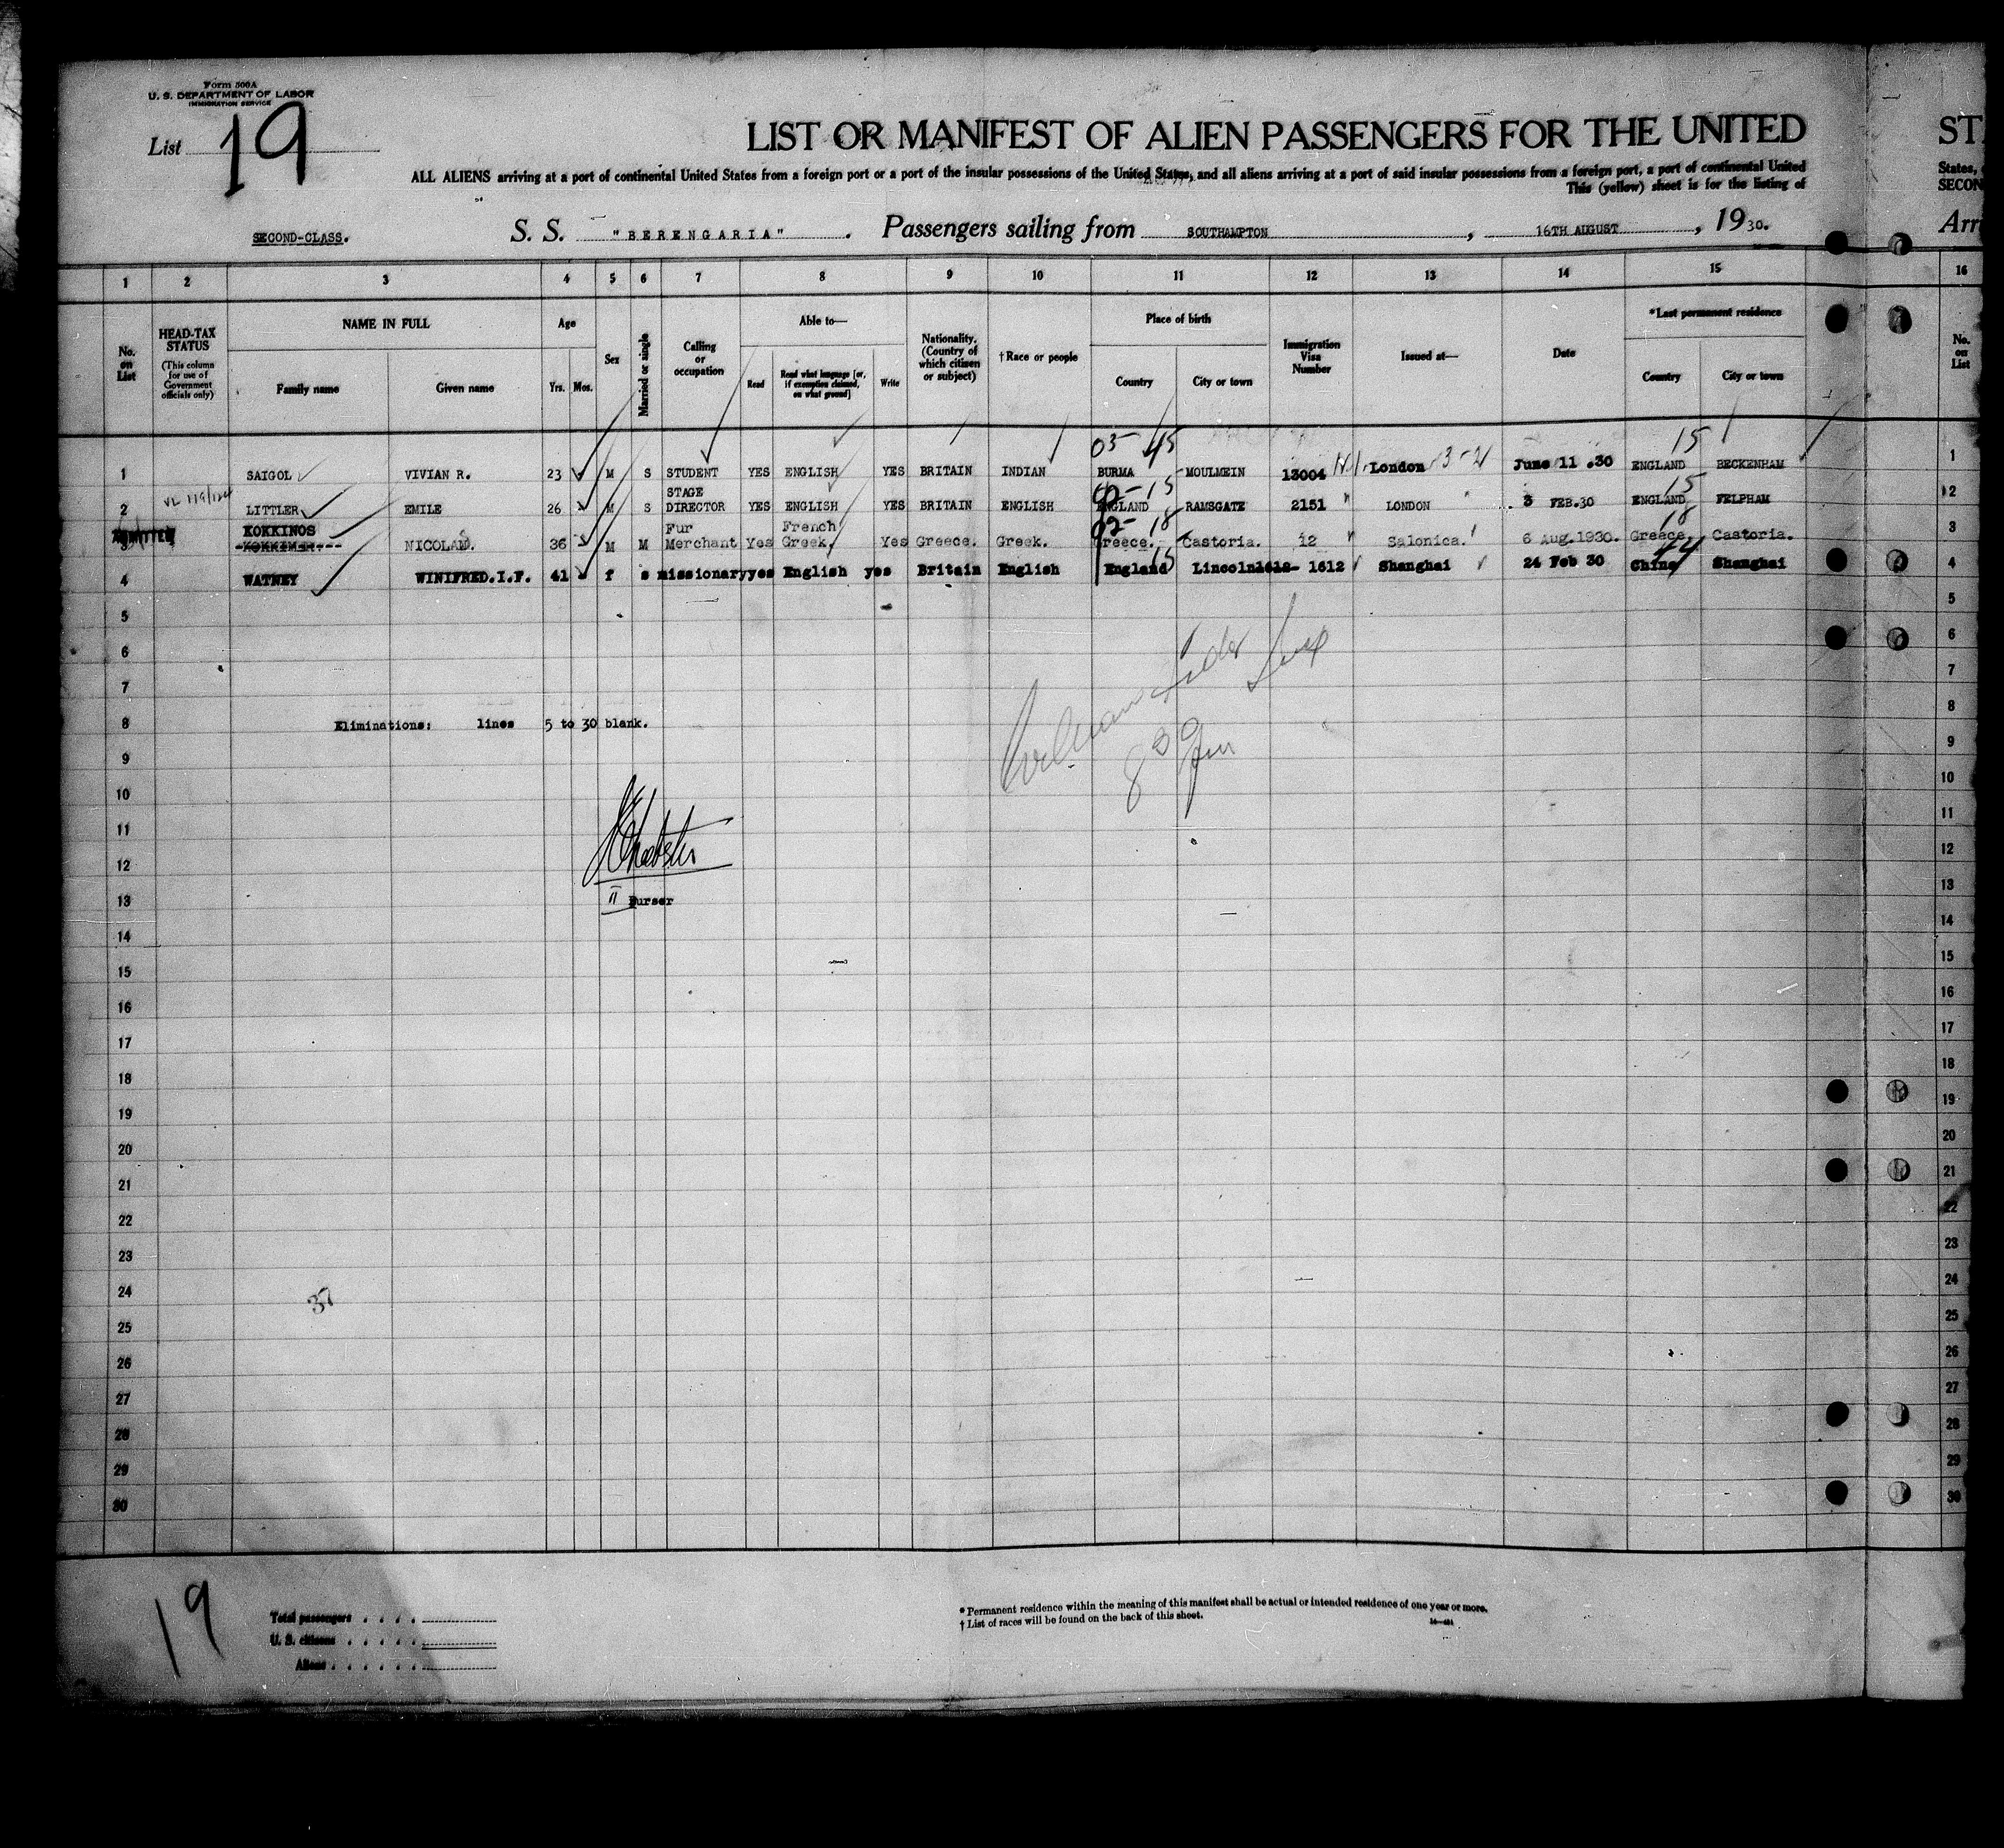 Form 500A
U. S. DEPARTMENT OF LABOR
IMMIGRATION SERVICE
List 19
LIST OR MANIFEST OF ALIEN PASSENGERS FOR THE UNITED
ST
ALL ALIENS arriving at a port of continental United States from a foreign port or a port of the insular possessions of the United States, and all aliens arriving at a port of said insular possessions from a foreign port, a part of continental United
States,
This (yellow) sheet is for the listing of
SECON
SECOND-CLASS. S. S. "BERENGARIA" . Passengers sailing from SOUTHAMPTON , 16TH AUGUST , 1930.
Arri
1 2 3 4 5 6 7 8 9 10 11 12 13 14 15 16
No. on List
HEAD-TAX STATUS
(This column for use of Government officials only)
NAME IN FULL
Family name Given name
Age
Yrs. Mos.
Sex
Married or single
Calling or occupation
Able to—
Read
Read what language [or, if exemption claimed, on what ground]
Write
Nationality. (Country of which citizen or subject)
†Race or people
Place of birth
Country City or town
Immigration Visa Number
Issued at—
Date
*Last permanent residence
Country City or town
No. on List
05 45 15
1 SAIGOL VIVIAN R. 23 M S STUDENT YES ENGLISH YES BRITAIN INDIAN BURMA MOULMEIN 13004 London 3-21 June 11 .30 ENGLAND BECKENHAM 1
15 15
2 LITTLER EMILE 26 M S STAGE DIRECTOR YES ENGLISH YES BRITAIN ENGLISH ENGLAND RAMSGATE 2151 " LONDON " 3 FEB.30 ENGLAND FELPHAM 2
ADMITTED
KOKKINOS
02- 18 18
3 NICOLAE. 36 M M Fur Merchant Yes French Greek. Yes Greece. Greek. Greece. Castoria. 12 " Salonica. 6 Aug.1930. Greece. Castoria. 3
15 44
4 WATNEY WINIFRED.I.F. 41 f s missionary yes English yes Britain English England Lincoln 1612- 1612 Shanghai 24 Feb 30 China Shanghai 4
5 5
6 6
7 7
8 Eliminations: lines 5 to 30 blank. 8
8 30 pm
9 9
10 10
11 11
12 12
13 II Purser 13
14 14
15 15
16 16
17 17
18 18
19 19
20 20
21 21
22 22
23 23
24 24
37
25 25
26 26
27 27
28 28
29 29
30 30
19
Total passengers . . . .
U. S. citizens . . . . .
Aliens . . . . . .
* Permanent residence within the meaning of this manifest shall be actual or intended residence of one year or more.
† List of races will be found on the back of this sheet.